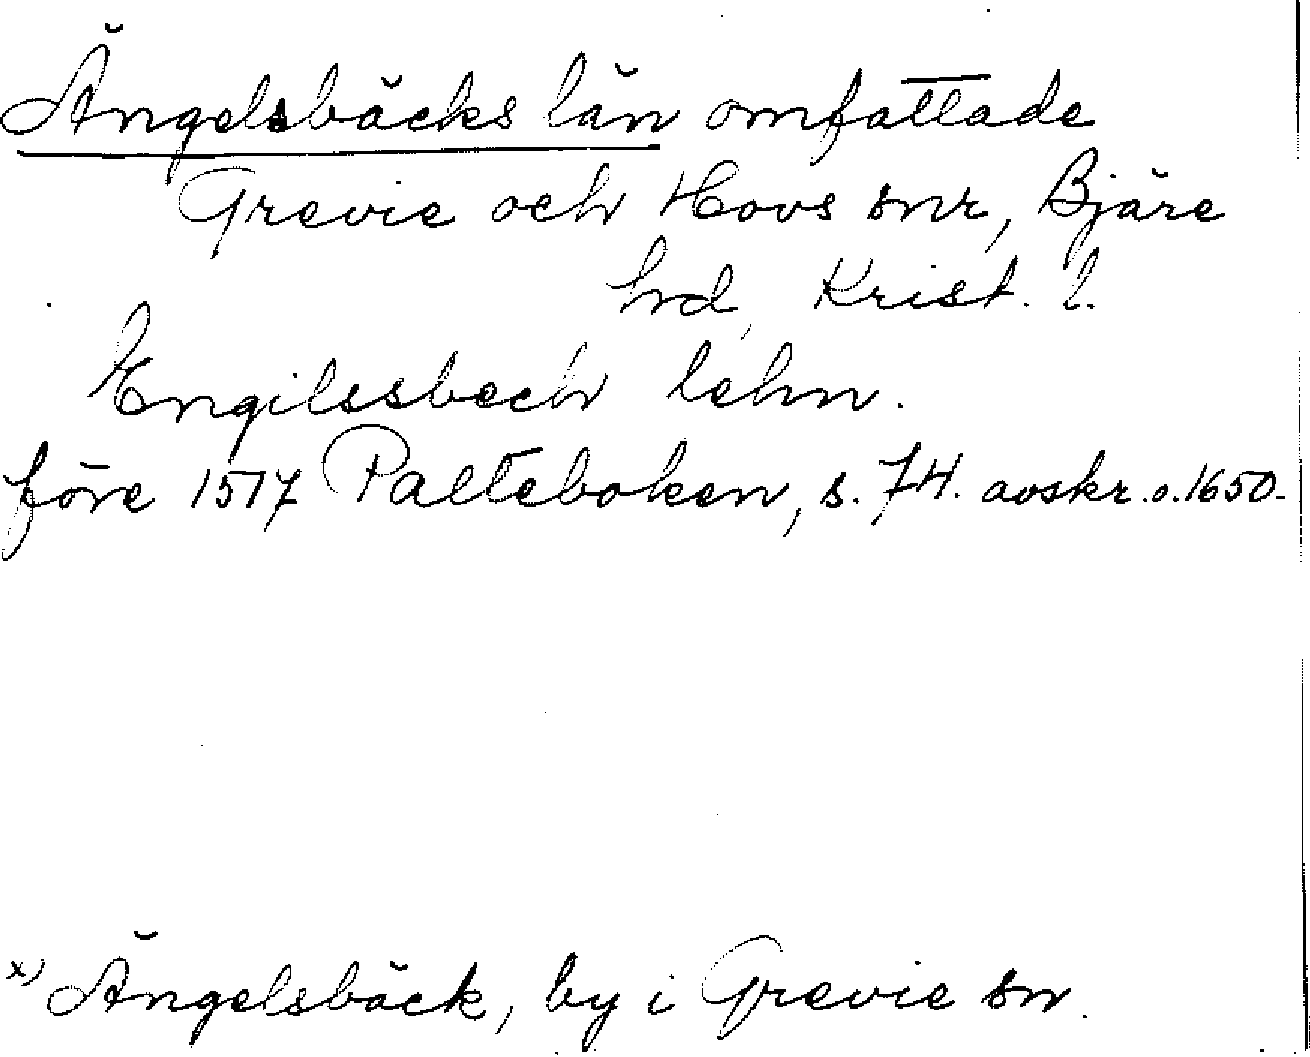 Ängelsbäcks län omfattade
Grevie och Hovs snr, Bjäre
hd, Krist. l.
Engilssbech lehn.
före 1517 Palteboken, s. 74. avskr. o. 1650.
x) Ängelsbäck, by i Grevie sn.